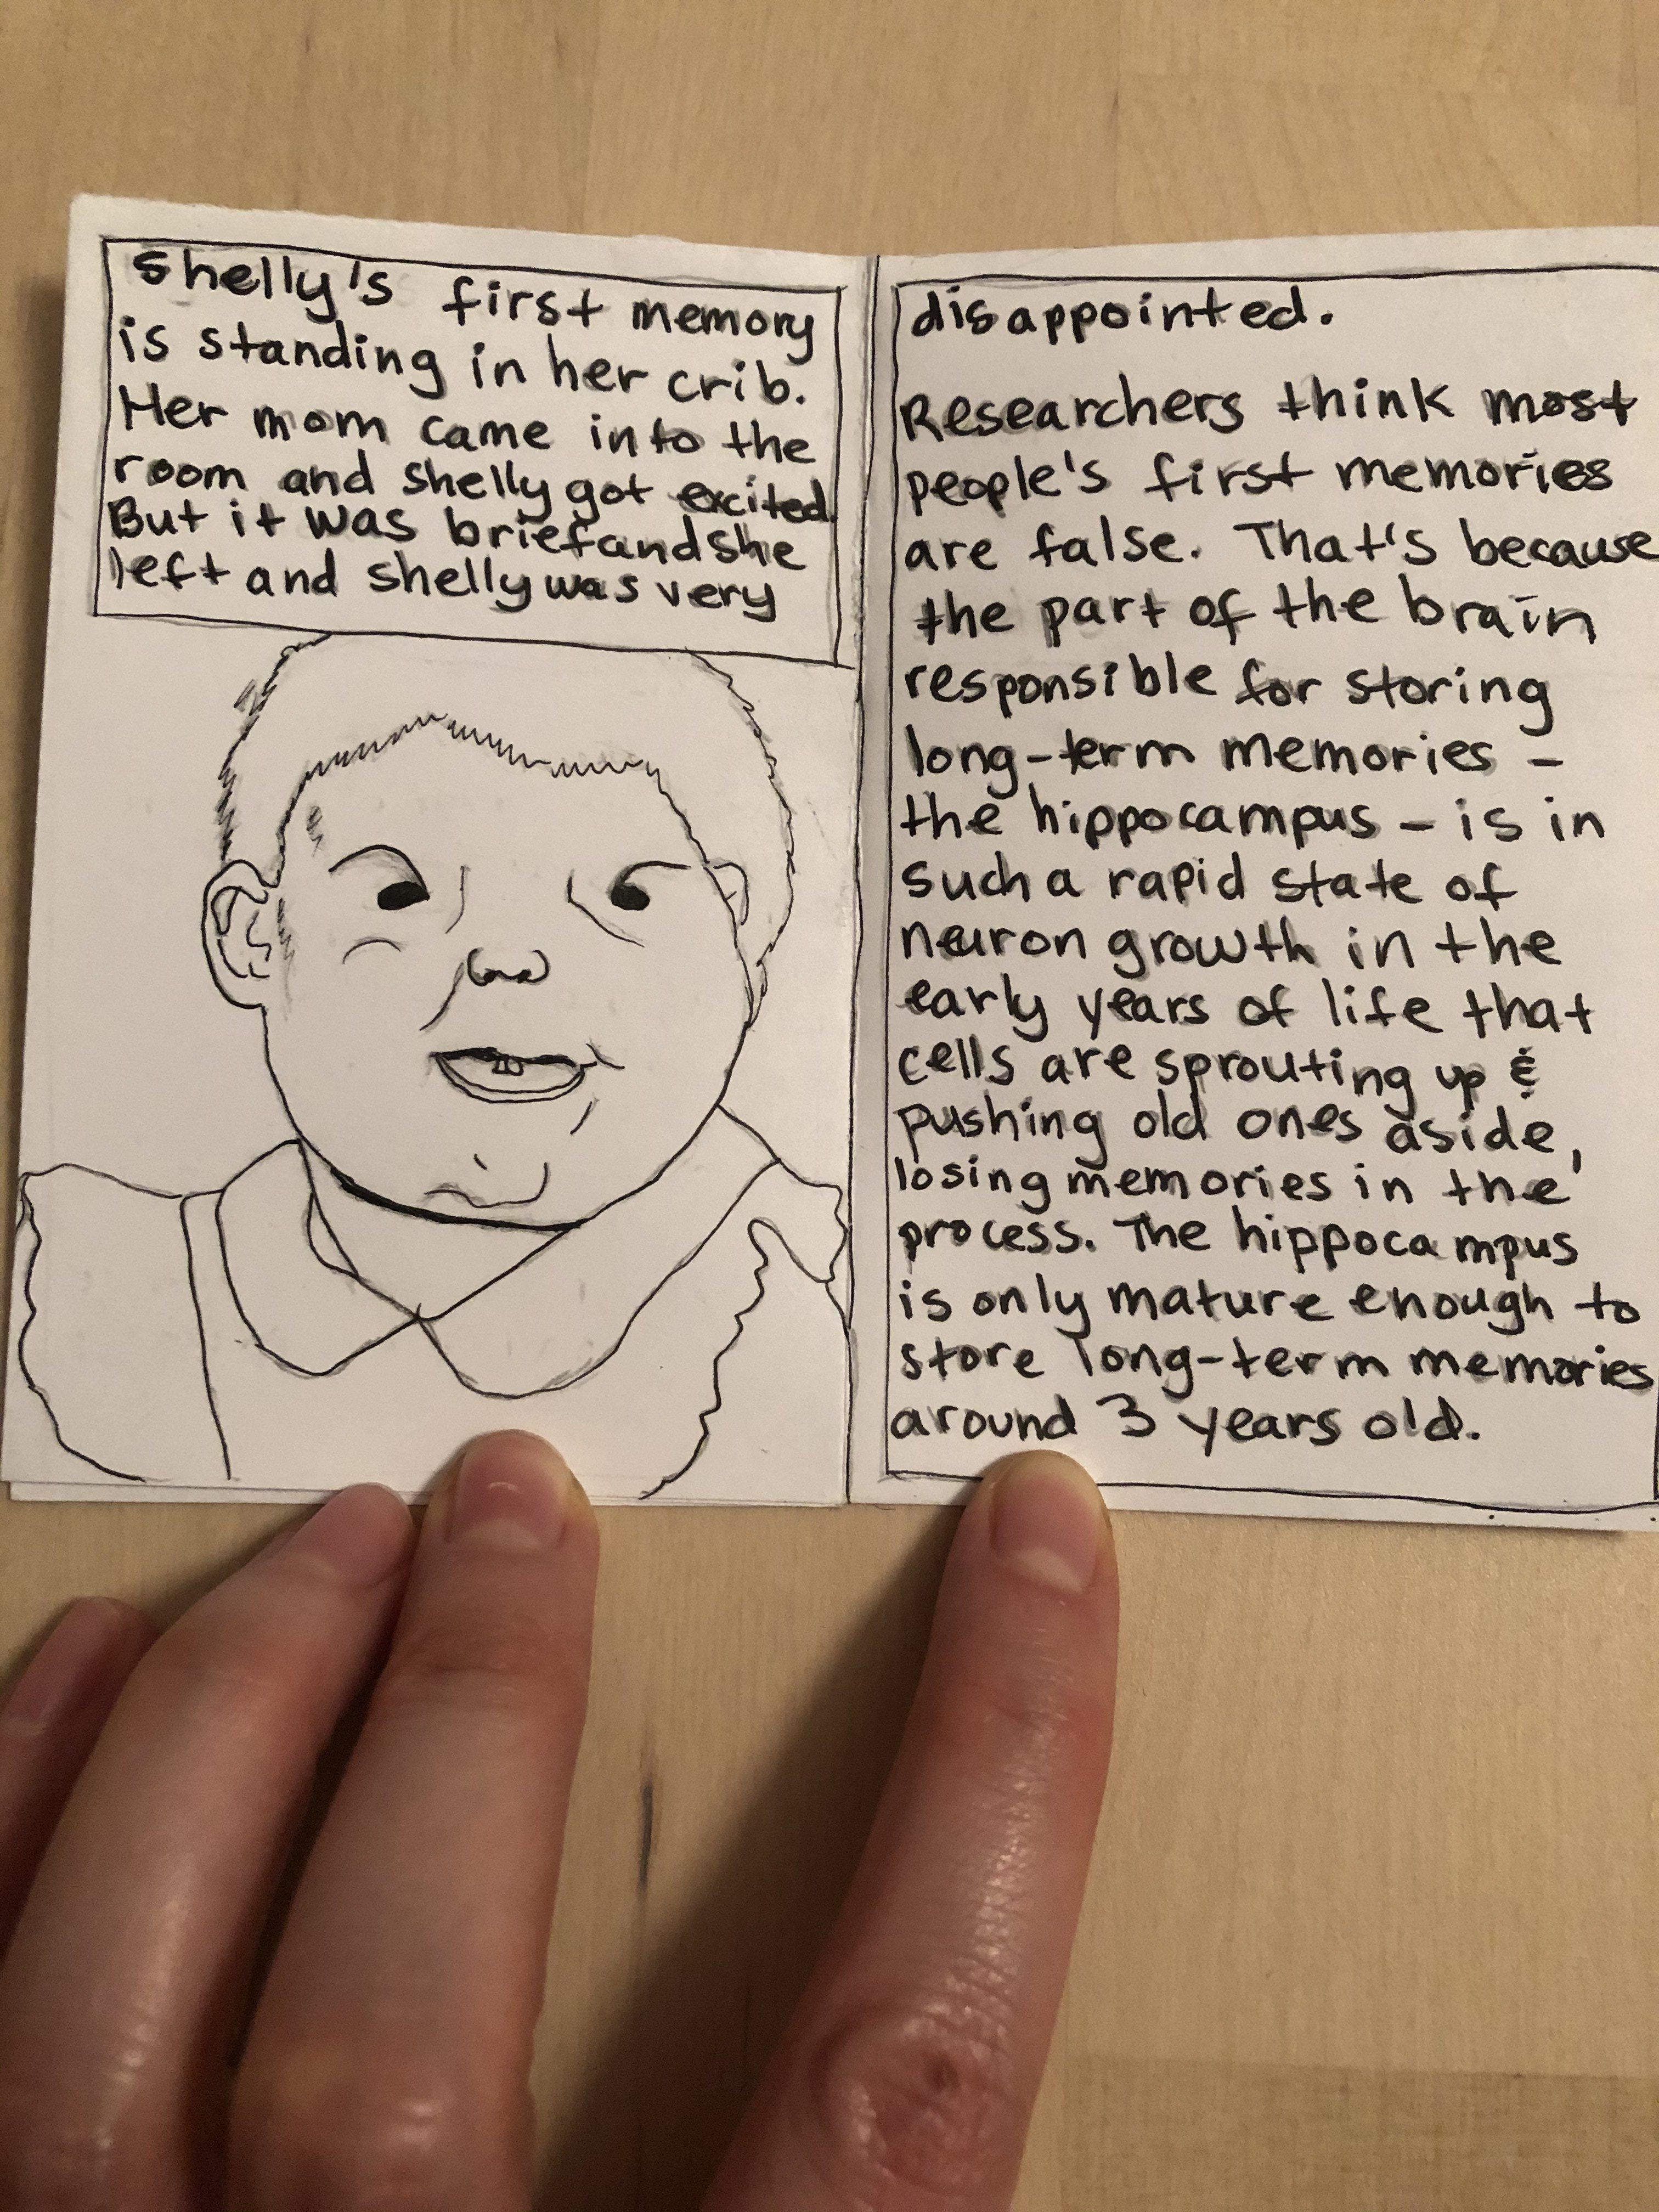 Shelly's first memory
is standing in her crib.
Her mom came into the
room and shelly got excited.
But it was brief and she
left and shelly was very
disappointed.
Researchers think most
people's first memories
are false. That's because
the part of the brain
responsible for storing
long-term memories -
the hippocampus - is in
such a rapid state of
neuron growth in the
early years of life that
cells are sprouting up &
pushing old ones aside,
losing memories in the
process. The hippocampus
is only mature enough to
store long-term memories
around 3 years old.